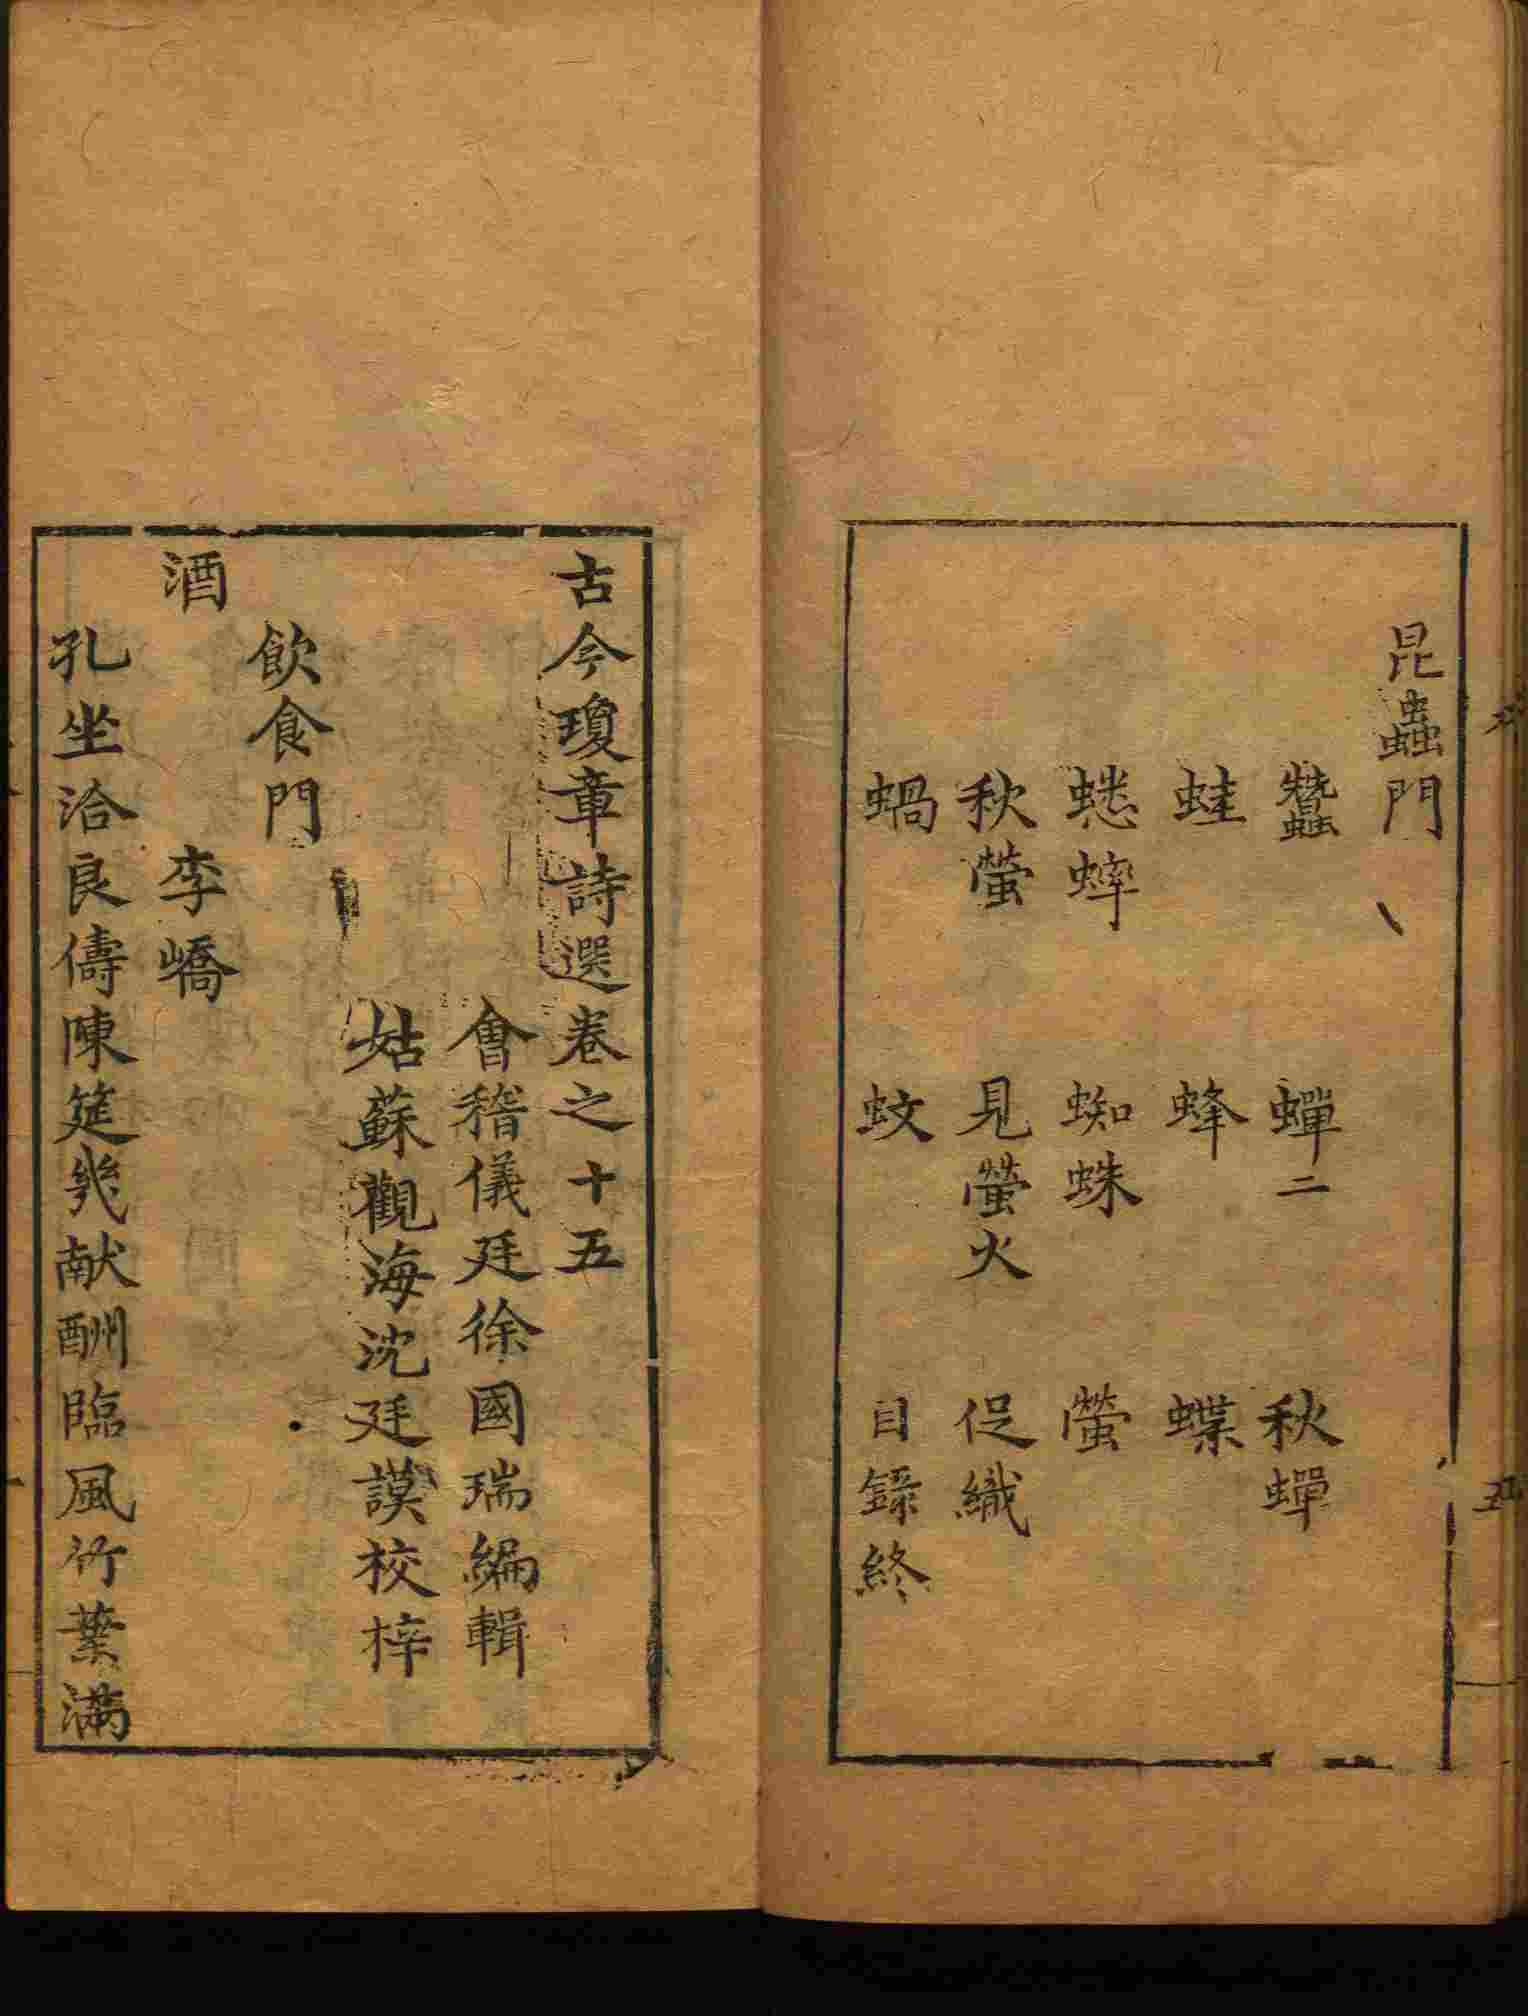 昆蟲門
蠶 蟬二 秋蟬
蛙 蜂 蝶
蟋蟀 蜘蛛 螢
秋螢 見螢火 促織
蝸 蚊 目錄終
古今瓊章詩選卷之十五
會稽儀廷徐國瑞編輯
姑蘇觀海沈廷謨校梓
飲食門
酒 李嶠
孔坐洽良儔陳筵幾献酬臨風竹葉滿